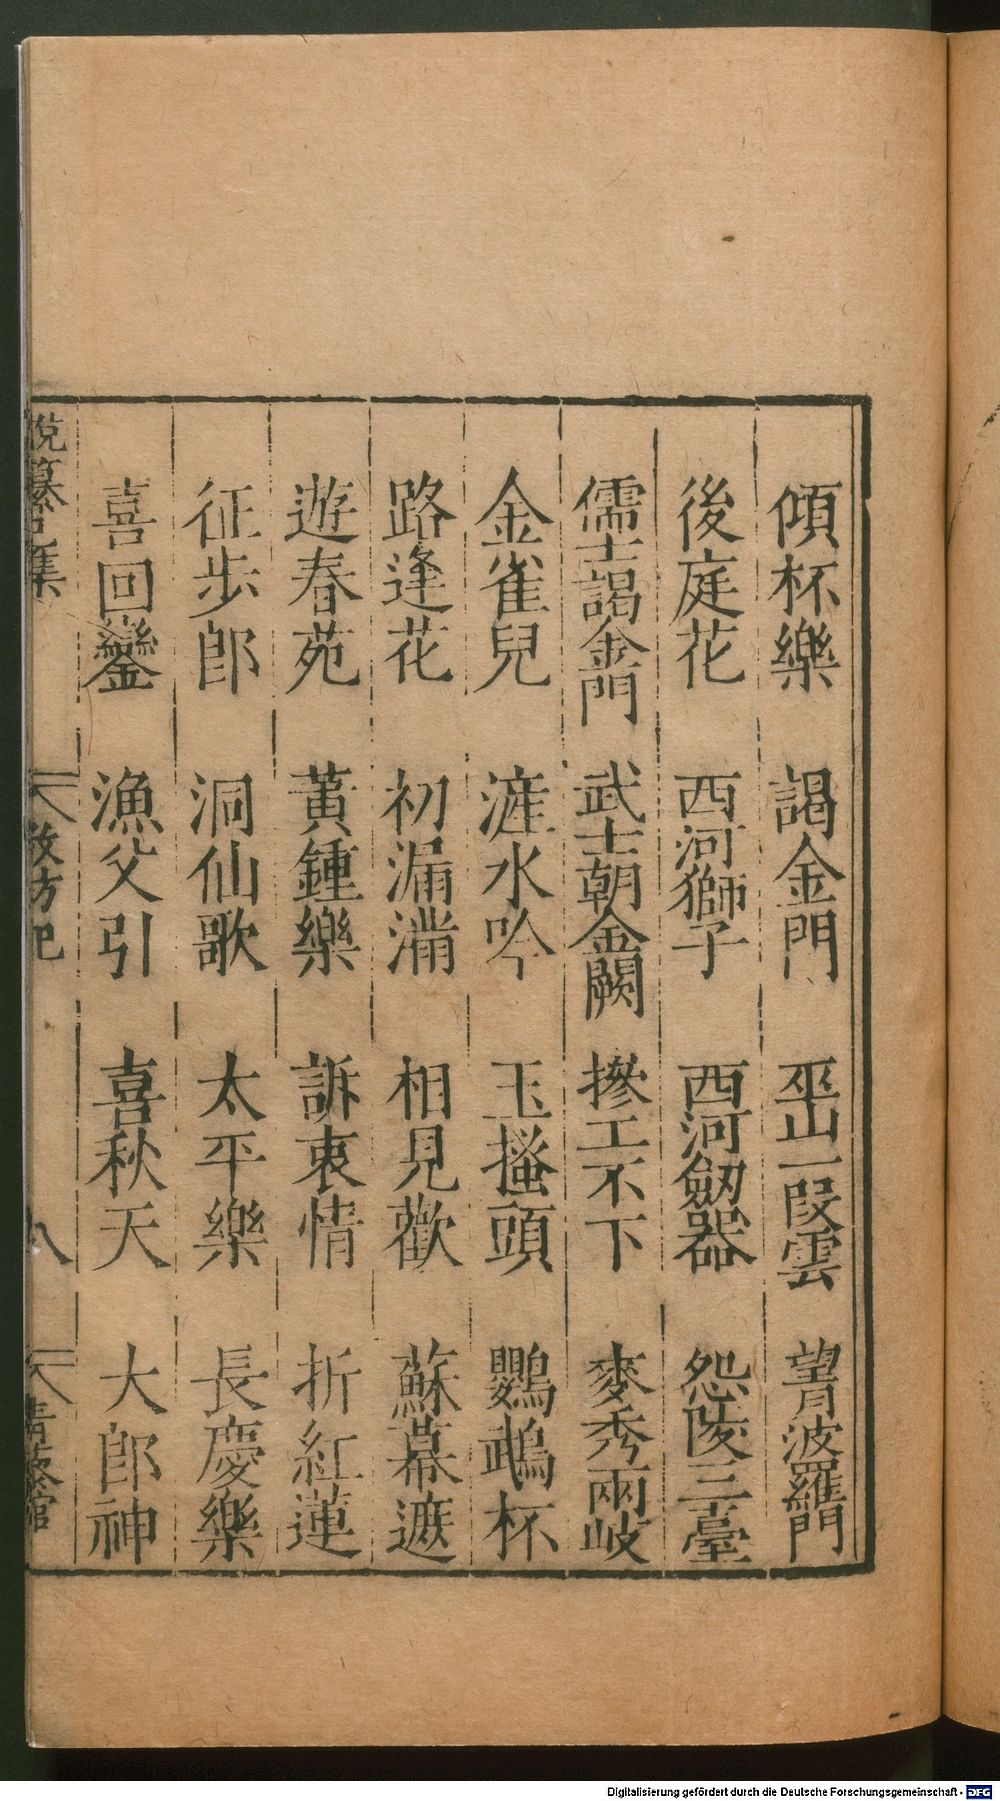 傾杯樂 謁金門 巫山一段雲 望月波羅門
後庭花 西河獅子 西河劒器 怨陵三臺
儒士謁金門 武士朝金闕 摻工不下 麥秀兩岐
金雀兒 漄水吟 玉搔頭 鸚鵡杯
路逢花 初漏滿 相見歡 蘇幕遮
遊春苑 黃鍾樂 訴衷情 折紅蓮
征步郎 洞仙歌 太平樂 長慶樂
喜回鑾 漁父引 喜秋天 大郎神
說纂己集 教坊記 八
Digitalisierung gefördert durch die Deutsche Forschungsgemeinschaft - DFG